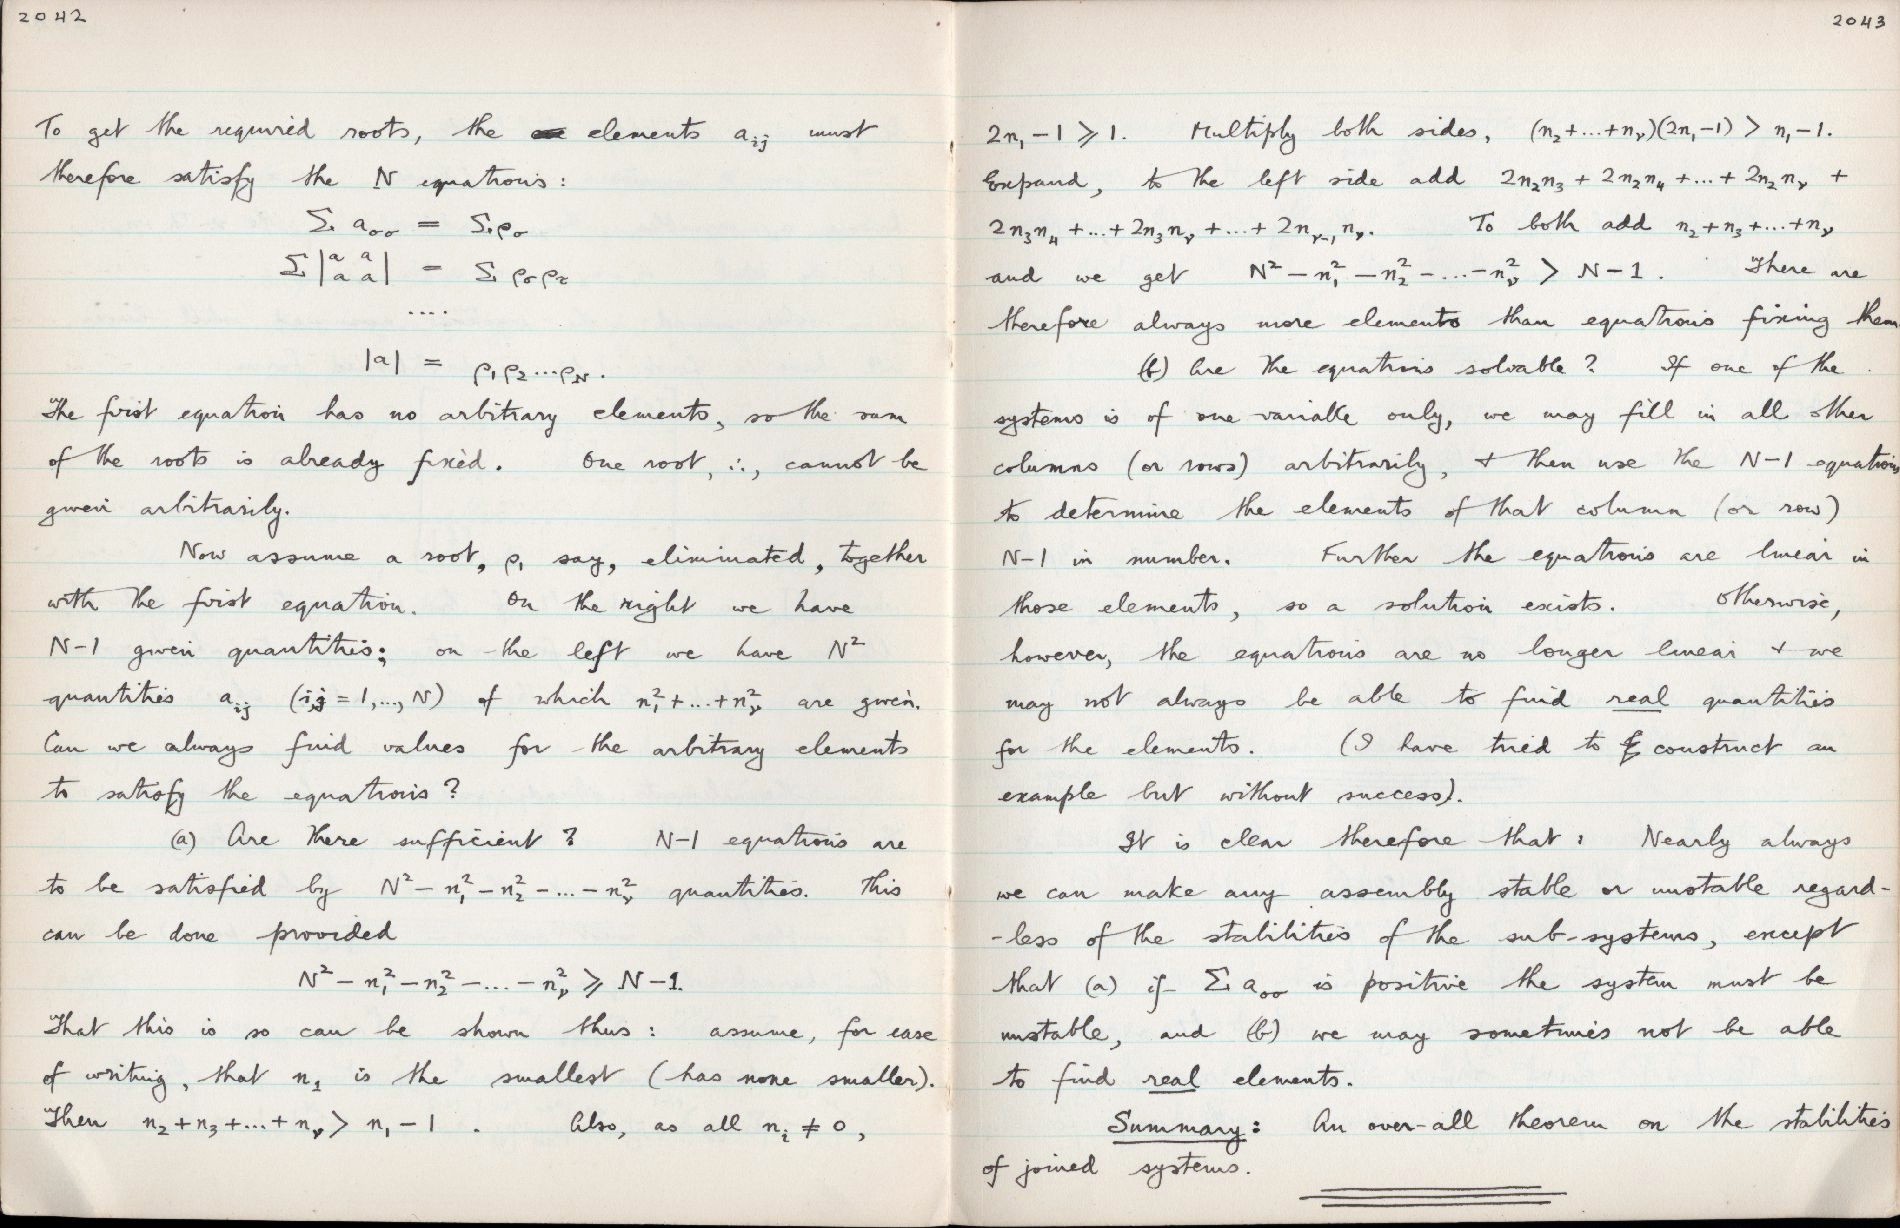 2042
To get the required roots, the elements aᵢⱼ must
therefore satisfy the N equations:
Σ a₀₀ = Σρσ
Σ |a a
a a| = Σ ρσρτ
....
|a| = ρ₁ρ₂...ρN.
The first equation has no arbitrary elements, so the sum
of the roots is already fixed. One root, ∴, cannot be
given arbitrarily.
Now assume a root, ρ₁ say, eliminated, together
with the first equation. On the right we have
N-1 given quantities; on the left we have N²
quantities aᵢⱼ (i,j = 1,..., N) of which n₁²+...+nᵥ² are given.
Can we always find values for the arbitrary elements
to satisfy the equations?
(a) Are there sufficient? N-1 equations are
to be satisfied by N² - n₁² - n₂² - ... - nᵥ² quantities. This
can be done provided
N² - n₁² - n₂² - ... - nᵥ² ⩾ N-1.
That this is so can be shown thus: assume, for ease
of writing, that n₁ is the smallest (has none smaller).
Then n₂+n₃+...+nᵥ > n₁-1 . Also, as all nᵢ ≠ 0,
2043
2n₁-1 ⩾ 1. Multiply both sides, (n₂+...+nᵥ)(2n₁-1) > n₁-1.
Expand, to the left side add 2n₂n₃ + 2n₂n₄ +...+ 2n₂nᵥ +
2n₃n₄ +...+ 2n₃nᵥ +...+ 2nᵥ₋₁nᵥ. To both add n₂+n₃+...+nᵥ
and we get N² - n₁² - n₂² - ... - nᵥ² > N-1. There are
therefore always more elements than equations fixing them
(b) Are the equations solvable? If one of the
systems is of one variable only, we may fill in all other
columns (or rows) arbitrarily, + then use the N-1 equations
to determine the elements of that column (or row)
N-1 in number. Further the equations are linear in
those elements, so a solution exists. Otherwise,
however, the equations are no longer linear + we
may not always be able to find real quantities
for the elements. (I have tried to construct an
example but without success).
It is clear therefore that: Nearly always
we can make any assembly stable or unstable regard-
-less of the stabilities of the sub-systems, except
that (a) if Σ a₀₀ is positive the system must be
unstable, and (b) we may sometimes not be able
to find real elements.
Summary: An over-all theorem on the stabilities
of joined systems.